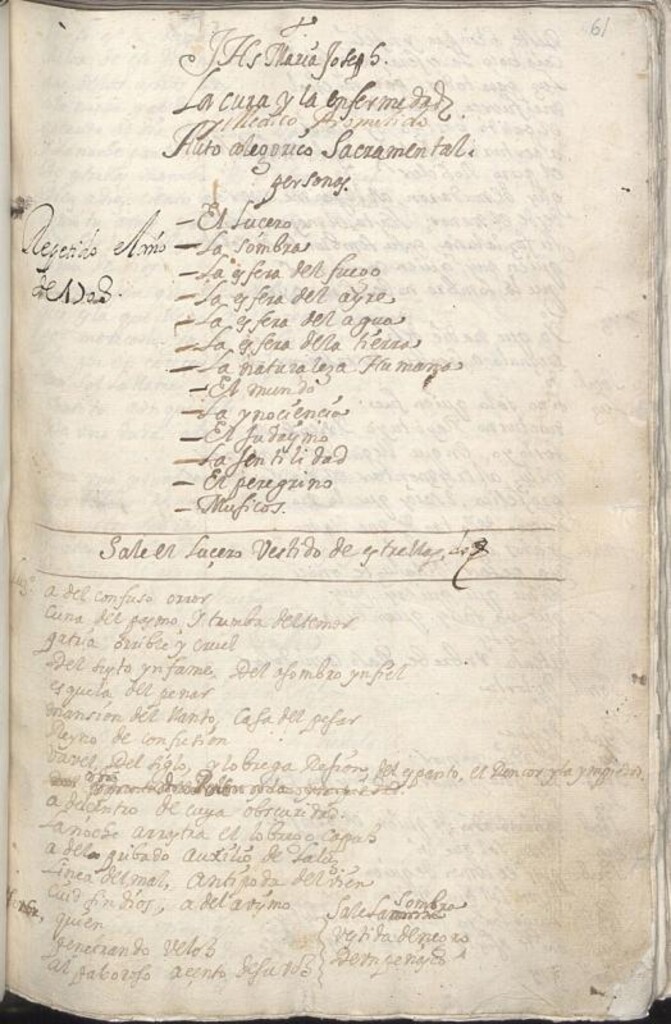 61
JHs Maria Joseph.
La cura y la enfermedad
Medico Prometido
Auto alegorico Sacramental.
personas.
Repetido el Año
de
– El Lucero
– La sombra
– La esfera del fuego
– La esfera del ayre
– La esfera del agua
– La esfera dela tierra
– La naturaleza Humana
– El mundo
– La ynocencia
– El Judaysmo
– La Jentilidad
– El peregrino
– Musicos.
Sale el Lucero Vestido de estrellas
a del confuso orror
Cuna del pasmo, y tumba del temor
patria orrible y cruel
del susto ynfame, del asombro ynfiel
esquela del penar
mansion del llanto, Casa del pesar
Reyno de confusion
Vavel, del siglo, y lobrega Rejion, del espanto, el Rencor y la ympiedad
adentro de cuya obscuridad.
La noche arrastra el lobrego Capuz
a dela pribada Auxilio de la luz
Linea del mal, Antipoda del vien
sin dios, a del avismo
quien
penetrando veloz
al paboroso acento de su voz
Sale La Sombra
vestida de negro